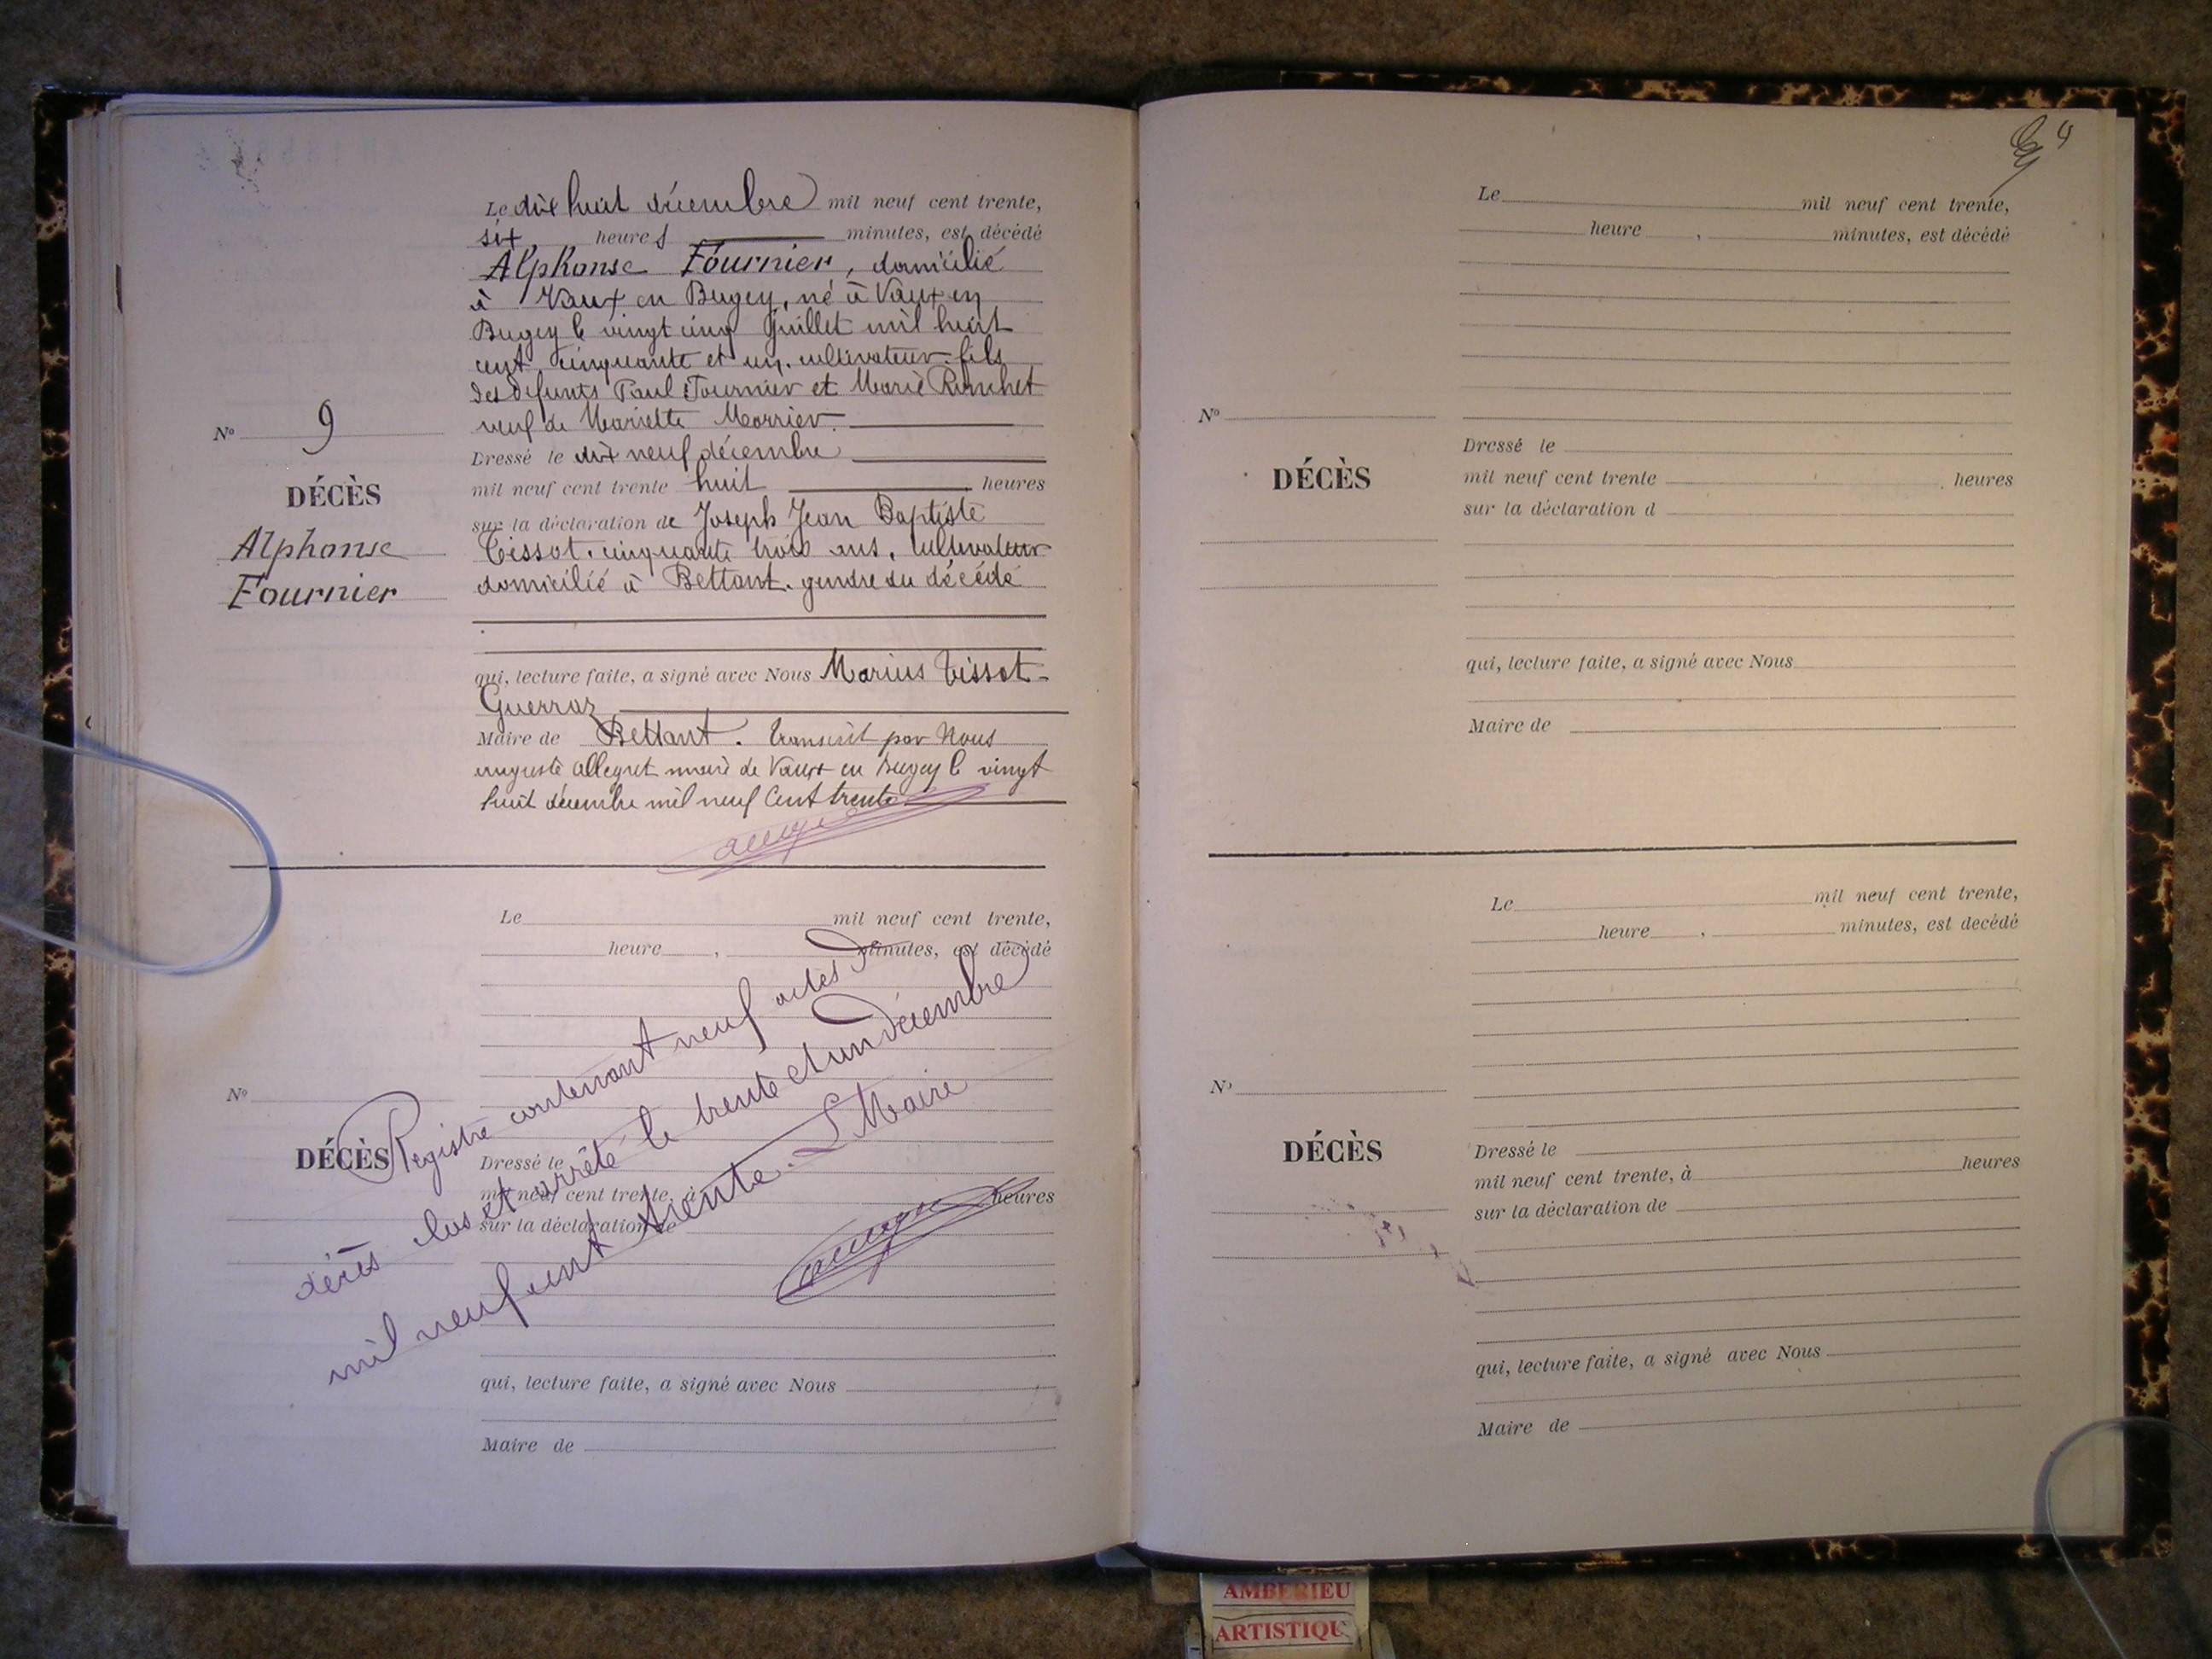 Le dix huit décembre mil neuf cent trente,
six heures minutes, est décédé
Alphonse Fournier, domicilié
à Vaux en Bugey, né à Vaux en
Bugey le vingt cinq Juillet mil huit
cent cinquante et un. cultivateur. fils
des defunts Paul Fournier et Marie
veuf de Mariette Morrier.
N° 9
Dressé le dix neuf décembre
mil neuf cent trente huit heures
DÉCÈS
sur la déclaration de Joseph Jean Baptiste
Alphonse
Tissot. cinquante trois ans, cultivateur
Fournier
domicilié à Bettant. gendre du décédé
qui, lecture faite, a signé avec Nous Marius Tissot-
Guerraz
Maire de Bettant. Transcrit par Nous
auguste allegret maire de Vaux en Bugey le vingt
huit décembre mil neuf cent trente
Le mil neuf cent trente,
heure , minutes, est décédé
N°
DÉCÈS
Dressé le
mil neuf cent trente, à heures
sur la déclaration de
qui, lecture faite, a signé avec Nous
Maire de
Registre contenant neuf actes de
décès clos et arrêté le trente et un décembre
mil neuf cent trente. Le Maire
Le mil neuf cent trente,
heure , minutes, est décédé
N°
Dressé le
DÉCÈS
mil neuf cent trente heures
sur la déclaration d
qui, lecture faite, a signé avec Nous
Maire de
Le mil neuf cent trente,
heure , minutes, est decédé
N°
DÉCÈS
Dressé le
mil neuf cent trente, à heures
sur la déclaration de
qui, lecture faite, a signé avec Nous
Maire de
AMBERIEU
ARTISTIQU